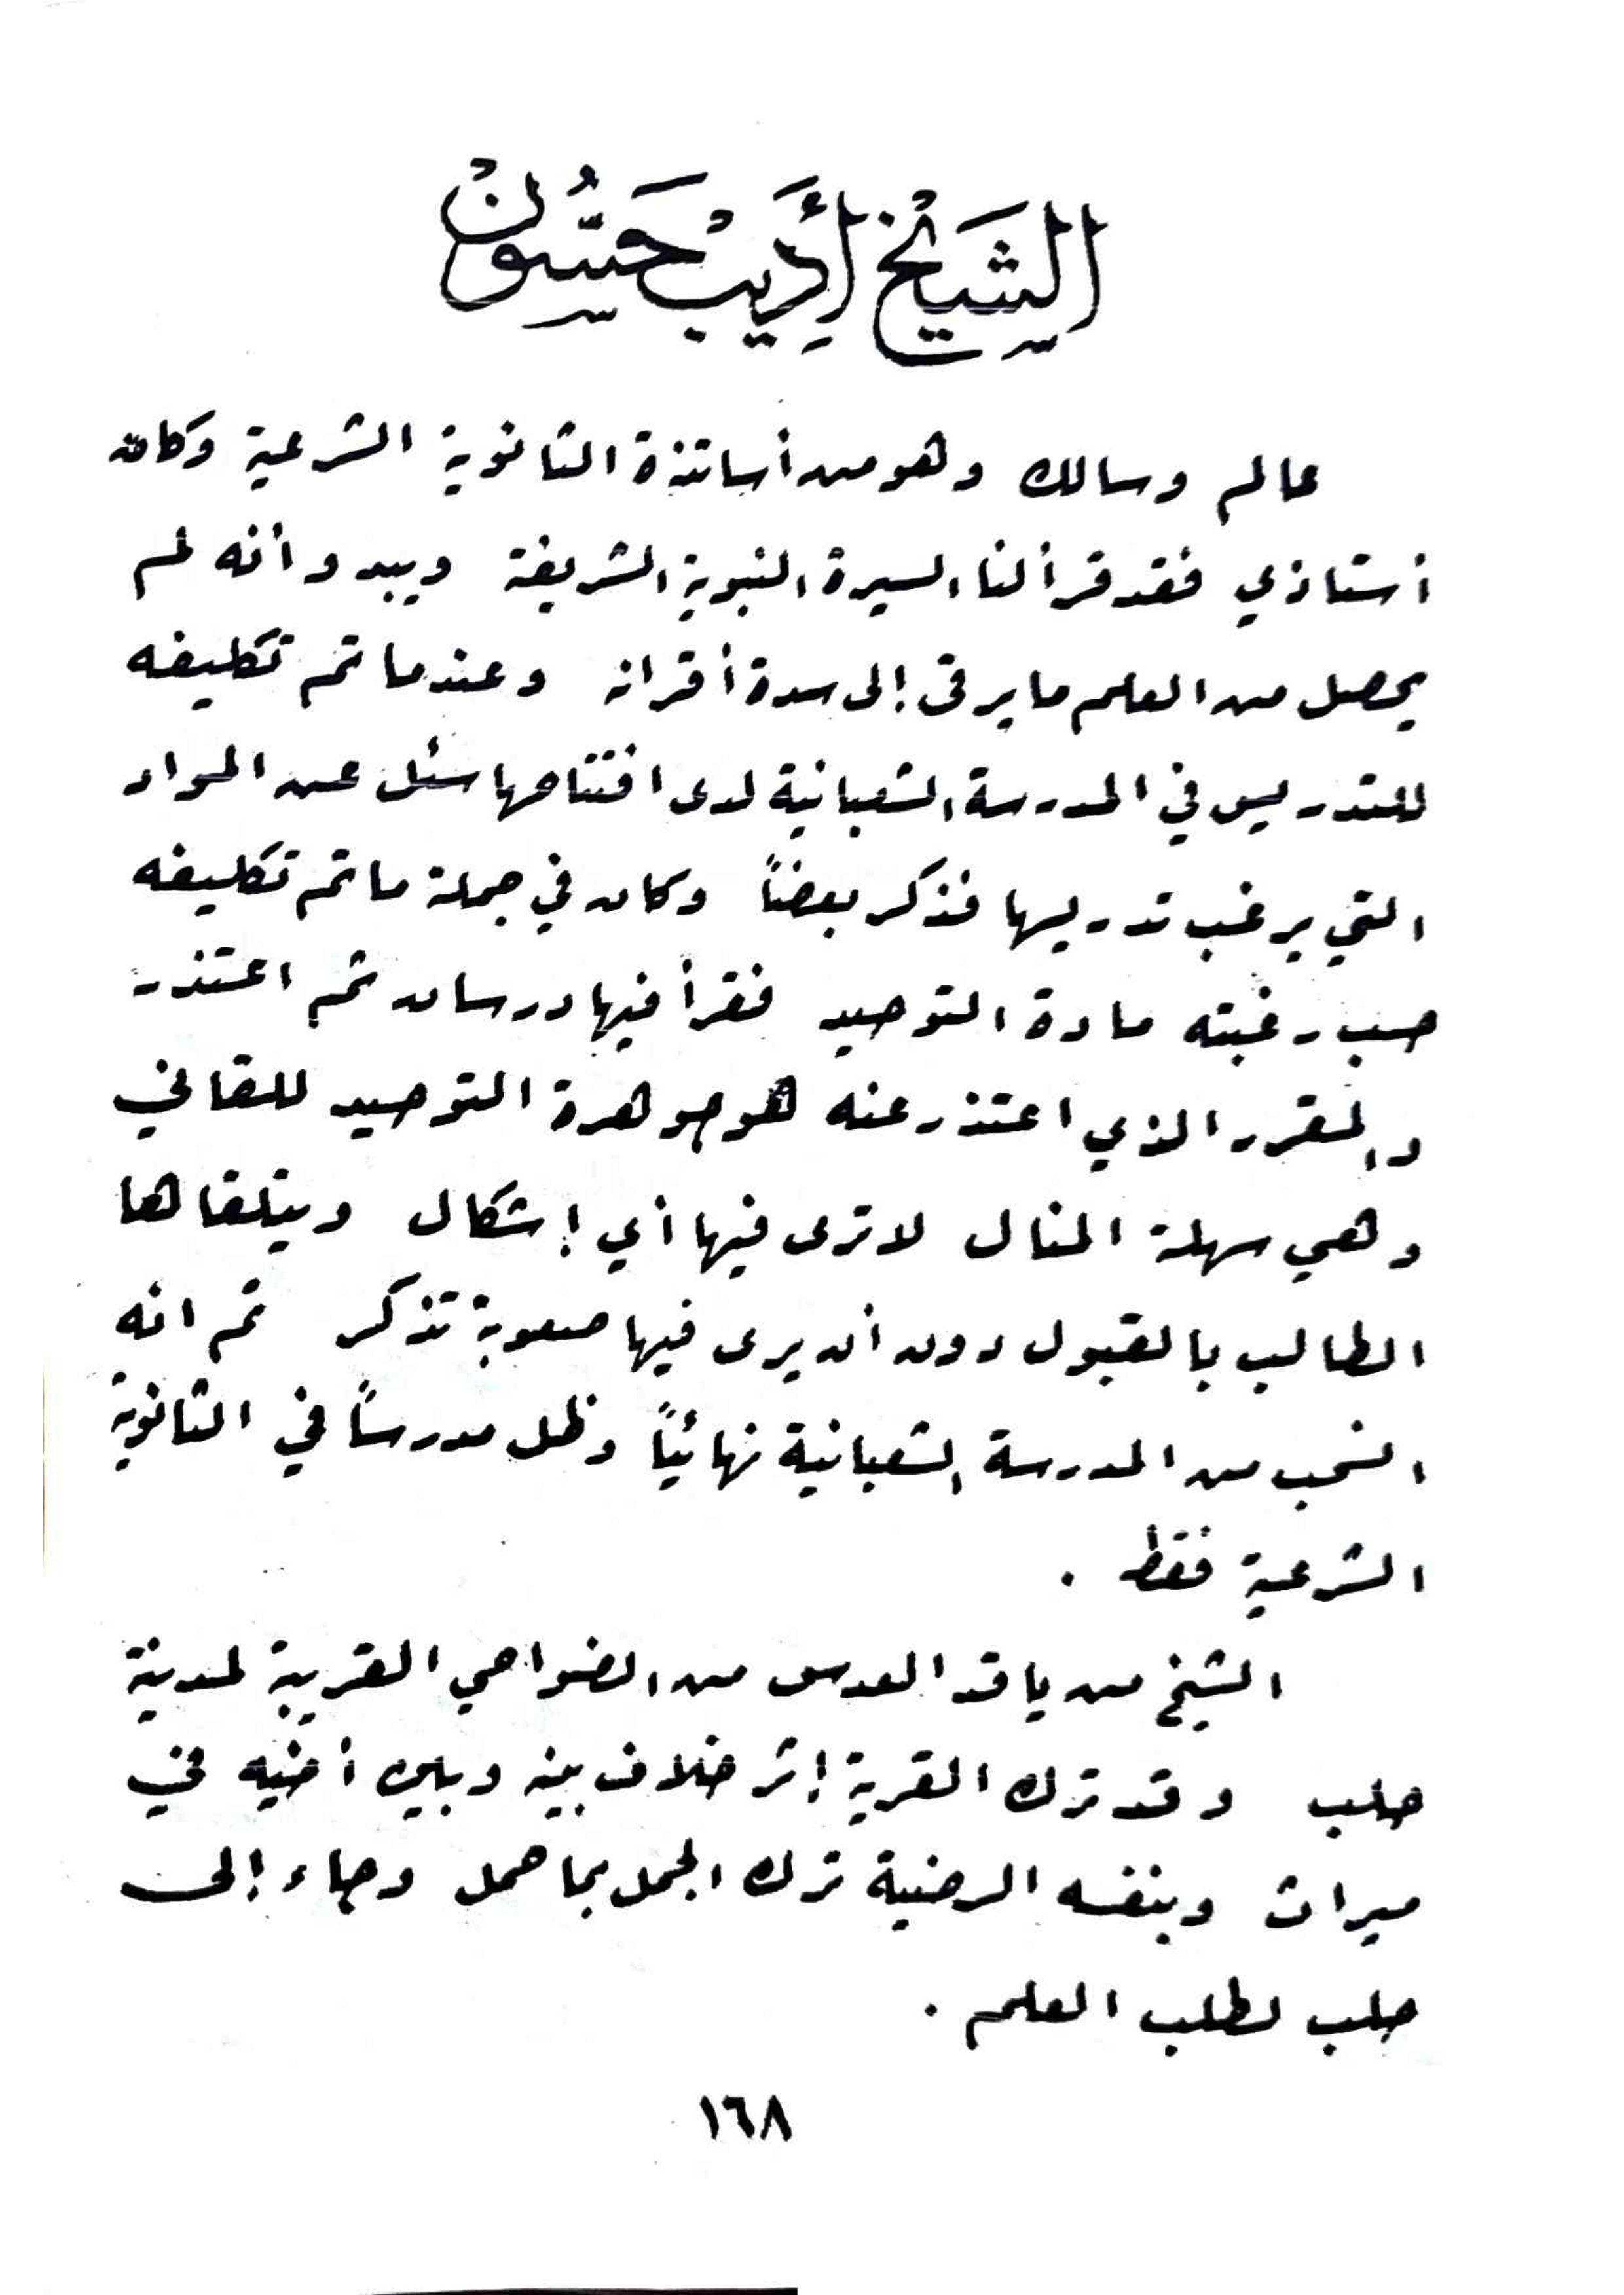 الشَيْخ أَدِيبْ حَسُّونْ
عالم وسالك وهو من أساتذة الثانوية الشرعية وكان
أستاذي فقد قرأ لنا السيرة النبوية الشريفة ويبدو أنه لم
يحصل من العلم ما يرقى إلى سدة أقرانه وعندما تم تكليفه
للتدريس في المدرسة الشعبانية لدى افتتاحها سئل عن المواد
التي يرغب تدريسها فذكر بعضاً وكان في جملة ما تم تكليفه
حسب رغبته مادة التوحيد فقرأ فيها درسان ثم اعتذر
والمقرر الذي اعتذر عنه هو جوهرة التوحيد للقاني
وهي سهلة المنال لا ترى فيها أي إشكال ويتلقاها
الطالب بالقبول دون أن يرى فيها صعوبة تذكر ثم انه
انسحب من المدرسة الشعبانية نهائياً وظل مدرساً في الثانوية
الشرعية فقط .
الشيخ من ياقد العدس من الضواحي القريبة لمدينة
حلب وقد ترك القرية إثر خلاف بينه وبين أخيه في
ميراث وبنفسه الرضية ترك الجمل بما حمل وجاء إلى
حلب لطلب العلم .
١٦٨